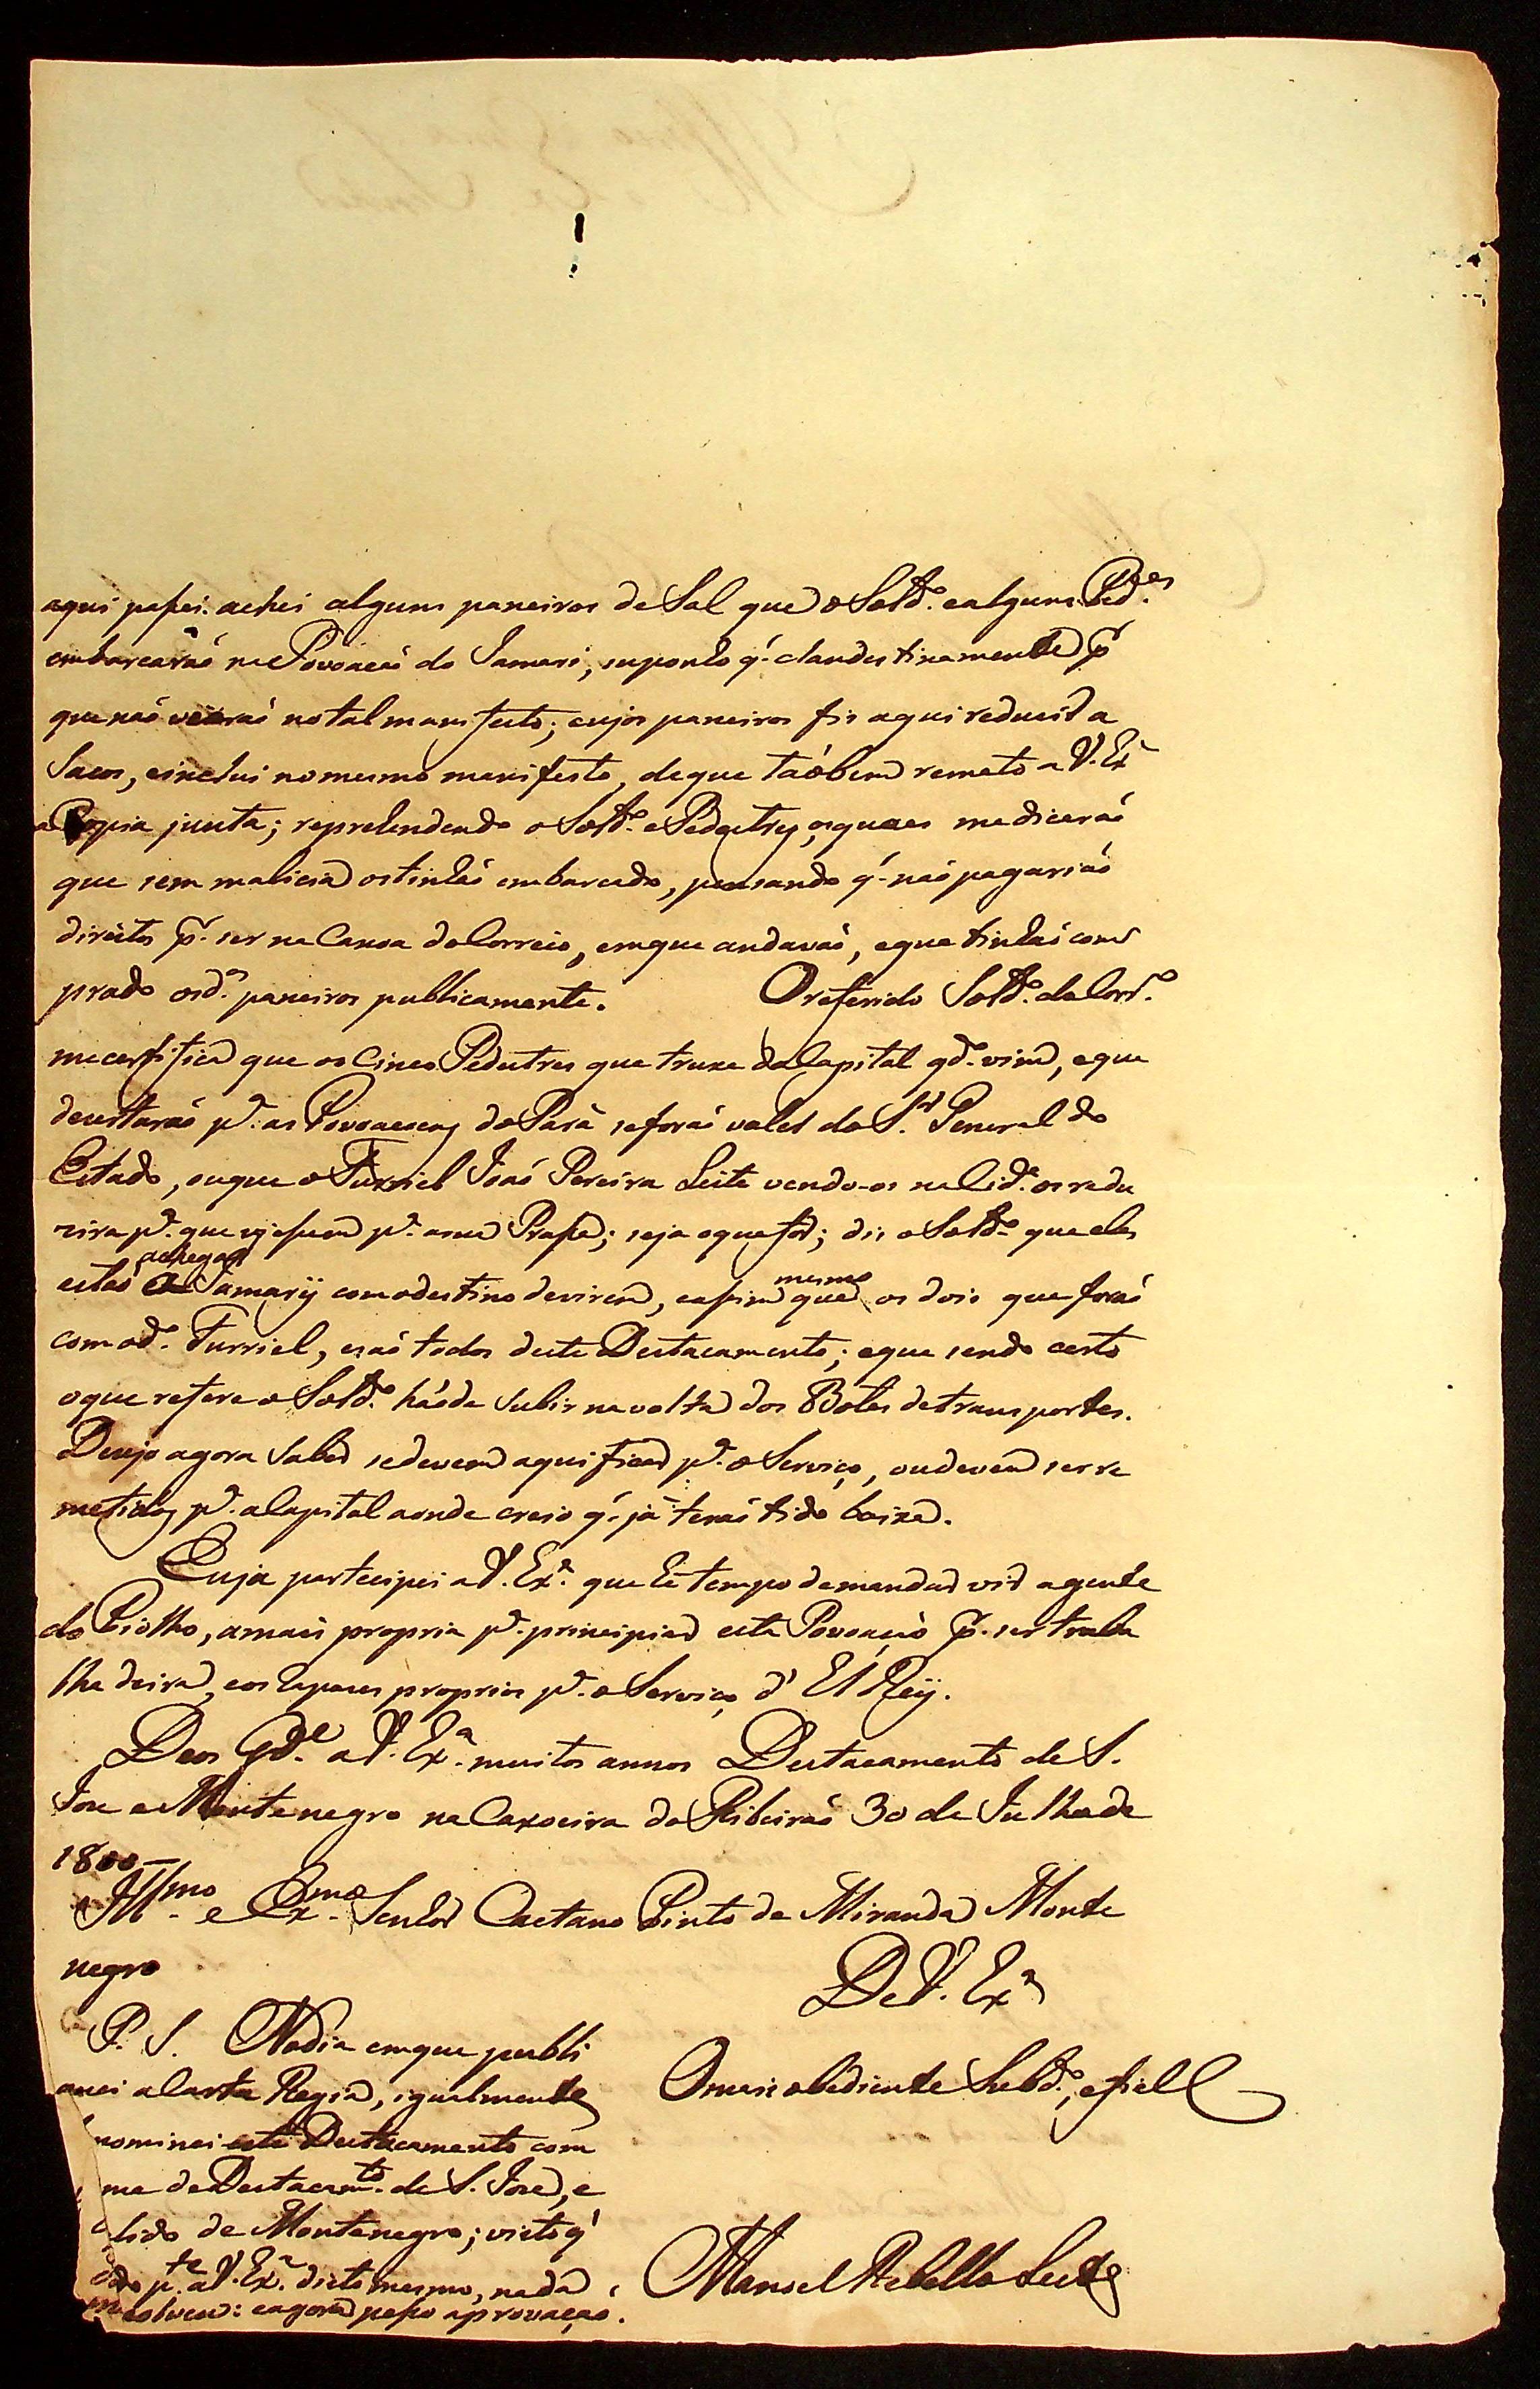 aqui passei: achei alguns paneiros de Sal que o Sold.º e alguns Ped.es
embarcaraõ na Povoacaõ do Jamari, suponho q' clandestinamente p
que naõ vieraõ no tal manifesto; cujos paneiros fis aqui reducir a
Sacos, e inclui no mesmo manifesto, de que taõbem remeto a V. Ex.ª
a Copia junta; reprehendendo o Sold.º e Pedestres, os quaes me diceraõ
que sem malicia os tinhaõ embarcado, pensando q' naõ pagariaõ
direitos p.r ser na Canoa do Correio, em que andavaõ, e que tinhaõ com
prado os d.os paneiros publicamente. O referido Sold.º da Corr.º
me certifica que os Cinco Pedestres que truxe da Capital qd.º vim, e que
desertaraõ p.ª as Povoacoens do Parà se foraõ valer do S.r General do
Estado, ou que o Furriel Joaõ Pereira Leite vendo-os na Cid.e os redu
zira p.ª que viessem p.ª a sua Praça; seja o que for; diz o Sold.º que eles
estaõ a chegar a Jamarÿ com o destino de virem, e assim mesmo que os dois que foraõ
com o d.º Furriel, e saõ todos deste Destacamento; e que sendo certo
o que refere o Sold.º haõ de Subir na volta dos Botes de transportes.
Desejo agora Saber se devem aqui ficar p.ª o Serviço, ou devem ser re
metidos p.ª a Capital aonde creio q' jà teraõ tido baixa.
Eu ja partecipei a V. Ex.ª que hè tempo de mandar vir a gente
do Piolho, a mais propria p.ª principiar esta Povoaçaõ p.r ser traba
lhadeira, e os rapazes proprios p.ª o Serviço d' El Reÿ.
Deos Gd.e a V. Ex.ª muitos annos Destacamento de S.
Joze e Montenegro na Caxoeira do Ribeiraõ 30 de Julho de
1800
Ill.mo e Ex.mo Senhor Caetano Pinto de Miranda Monte
negro
De V. Ex.ª
O mais obediente Subd.º, e fiel
Manoel Rebello Leite
P. S. No dia em que publi
quei a Carta Regia, igualmente
nominei este Destacamento com
me de Destacam.to de S. Joze, e
lido de Montenegro; visto q'
do p.te a V. Ex.ª disto mesmo, nada
resolveu: e agora pesso aprovaçaõ.